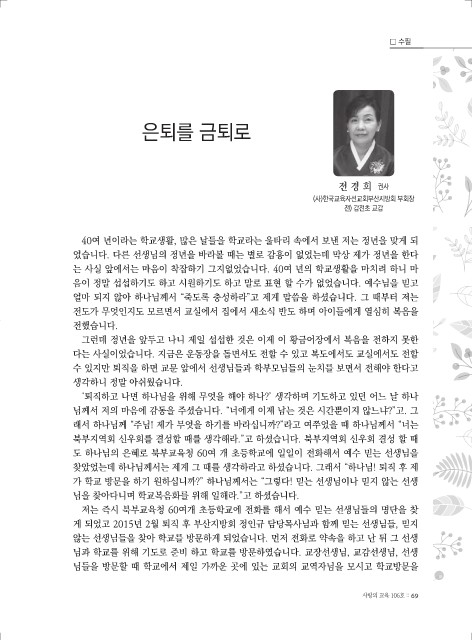 □ 수필
은퇴를 금퇴로
전 경 희 권사
(사)한국교육자선교회부산지방회 부회장
전) 감전초 교감
40여 년이라는 학교생활, 많은 날들을 학교라는 울타리 속에서 보낸 저는 정년을 맞게 되
었습니다. 다른 선생님의 정년을 바라볼 때는 별로 감흥이 없었는데 막상 제가 정년을 한다
는 사실 앞에서는 마음이 착잡하기 그지없었습니다. 40여 년의 학교생활을 마치려 하니 마
음이 정말 섭섭하기도 하고 시원하기도 하고 말로 표현 할 수가 없었습니다. 예수님을 믿고
얼마 되지 않아 하나님께서 “죽도록 충성하라”고 제게 말씀을 하셨습니다. 그 때부터 저는
전도가 무엇인지도 모르면서 교실에서 집에서 새소식 반도 하며 아이들에게 열심히 복음을
전했습니다.
그런데 정년을 앞두고 나니 제일 섭섭한 것은 이제 이 황금어장에서 복음을 전하지 못한
다는 사실이었습니다. 지금은 운동장을 돌면서도 전할 수 있고 복도에서도 교실에서도 전할
수 있지만 퇴직을 하면 교문 앞에서 선생님들과 학부모님들의 눈치를 보면서 전해야 한다고
생각하니 정말 아쉬웠습니다.
‘퇴직하고 나면 하나님을 위해 무엇을 해야 하나?’ 생각하며 기도하고 있던 어느 날 하나
님께서 저의 마음에 감동을 주셨습니다. “너에게 이제 남는 것은 시간뿐이지 않느냐?”고, 그
래서 하나님께 “주님! 제가 무엇을 하기를 바라십니까?”라고 여쭈었을 때 하나님께서 “너는
북부지역회 신우회를 결성할 때를 생각해라.”고 하셨습니다. 북부지역회 신우회 결성 할 때
도 하나님의 은혜로 북부교육청 60여 개 초등학교에 일일이 전화해서 예수 믿는 선생님을
찾았었는데 하나님께서는 제게 그 때를 생각하라고 하셨습니다. 그래서 “하나님! 퇴직 후 제
가 학교 방문을 하기 원하십니까?” 하나님께서는 “그렇다! 믿는 선생님이나 믿지 않는 선생
님을 찾아다니며 학교복음화를 위해 일해라.”고 하셨습니다.
저는 즉시 북부교육청 60여개 초등학교에 전화를 해서 예수 믿는 선생님들의 명단을 찾
게 되었고 2015년 2월 퇴직 후 부산지방회 정인규 담당목사님과 함께 믿는 선생님들, 믿지
않는 선생님들을 찾아 학교를 방문하게 되었습니다. 먼저 전화로 약속을 하고 난 뒤 그 선생
님과 학교를 위해 기도로 준비 하고 학교를 방문하였습니다. 교장선생님, 교감선생님, 선생
님들을 방문할 때 학교에서 제일 가까운 곳에 있는 교회의 교역자님을 모시고 학교방문을
사랑의 교육 106호 :: 69